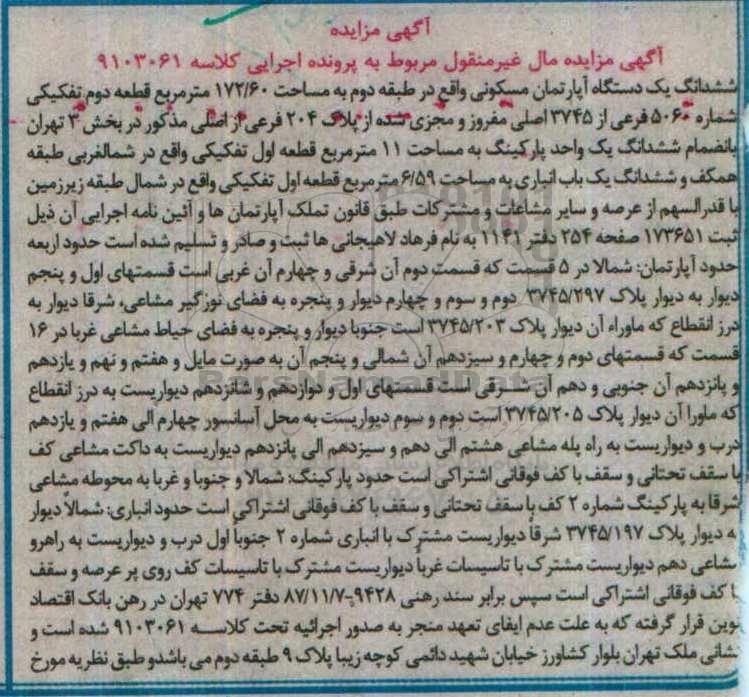 آگهی مزایده
آگهی مزایده مال غیرمنقول مربوط به پرونده اجرایی کلاسه ۹۱۰۳۰۶۱
ششدانگ یک دستگاه آپارتمان مسکونی واقع در طبقه دوم به مساحت ۱۷۲/۶۰ مترمربع قطعه دوم تفکیکی
شماره ۵۰۶۰ فرعی از ۳۷۴۵ اصلی مفروز و مجزی شده از پلاک ۲۰۴ فرعی از اصلی مذکور در بخش ۳ تهران
بانضمام ششدانگ یک واحد پارکینگ به مساحت ۱۱ مترمربع قطعه اول تفکیکی واقع در شمالغربی طبقه
همکف و ششدانگ یک باب انباری به مساحت ۶/۵۹ مترمربع قطعه اول تفکیکی واقع در شمال طبقه زیرزمین
با قدرالسهم از عرصه و سایر مشاعات و مشترکات طبق قانون تملک آپارتمان ها و آئین نامه اجرایی آن ذیل
ثبت ۱۷۳۶۵۱ صفحه ۲۵۴ دفتر ۱۱۴۱ به نام فرهاد لاهیجانی ها ثبت و صادر و تسلیم شده است حدود اربعه
حدود آپارتمان: شمالا در ۵ قسمت که قسمت دوم آن شرقی و چهارم آن غربی است قسمتهای اول و پنجم
دیوار به دیوار پلاک ۳۷۴۵/۲۹۷ دوم و سوم و چهارم دیوار و پنجره به فضای نورگیر مشاعی، شرقا دیوار به
درز انقطاع که ماوراء آن دیوار پلاک ۳۷۴۵/۲۰۳ است جنوبا دیوار و پنجره به فضای حیاط مشاعی غربا در ۱۶
قسمت که قسمتهای دوم و چهارم و سیزدهم آن شمالی و پنجم آن به صورت مایل و هفتم و نهم و یازدهم
و پانزدهم آن جنوبی و دهم آن شرقی است قسمتهای اول و دوازدهم و شانزدهم دیواریست به درز انقطاع
که ماورا آن دیوار پلاک ۳۷۴۵/۲۰۵ است دوم و سوم دیواریست به محل آسانسور چهارم الی هفتم و یازدهم
درب و دیواریست به راه پله مشاعی هشتم الی دهم و سیزدهم الی پانزدهم دیواریست به داکت مشاعی کف
با سقف تحتانی و سقف با کف فوقانی اشتراکی است حدود پارکینگ: شمالا و جنوبا و غربا به محوطه مشاعی
شرقا به پارکینگ شماره ۲ کف با سقف تحتانی و سقف با کف فوقانی اشتراکی است حدود انباری: شمالاً دیوار
به دیوار پلاک ۳۷۴۵/۱۹۷ شرقاً دیواریست مشترک با انباری شماره ۲ جنوباً اول درب و دیواریست به راهرو
مشاعی دهم دیواریست مشترک با تاسیسات غرباً دیواریست مشترک با تاسیسات کف روی پر عرصه و سقف
با کف فوقانی اشتراکی است سپس برابر سند رهنی ۹۴۲۸-۸۷/۱۱/۷ دفتر ۷۷۴ تهران در رهن بانک اقتصاد
نوین قرار گرفته که به علت عدم ایفای تعهد منجر به صدور اجرائیه تحت کلاسه ۹۱۰۳۰۶۱ شده است و
نشانی ملک تهران بلوار کشاورز خیابان شهید دائمی کوچه زیبا پلاک ۹ طبقه دوم می باشدو طبق نظریه مورخ
ParsNamadData